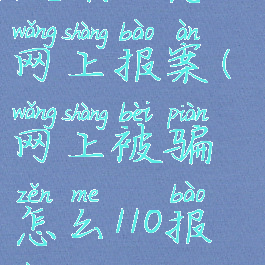 wǎng shàng bào àn
网上报案(
wǎng shàng bèi piàn
网上被骗
zěn me bào
怎么110报